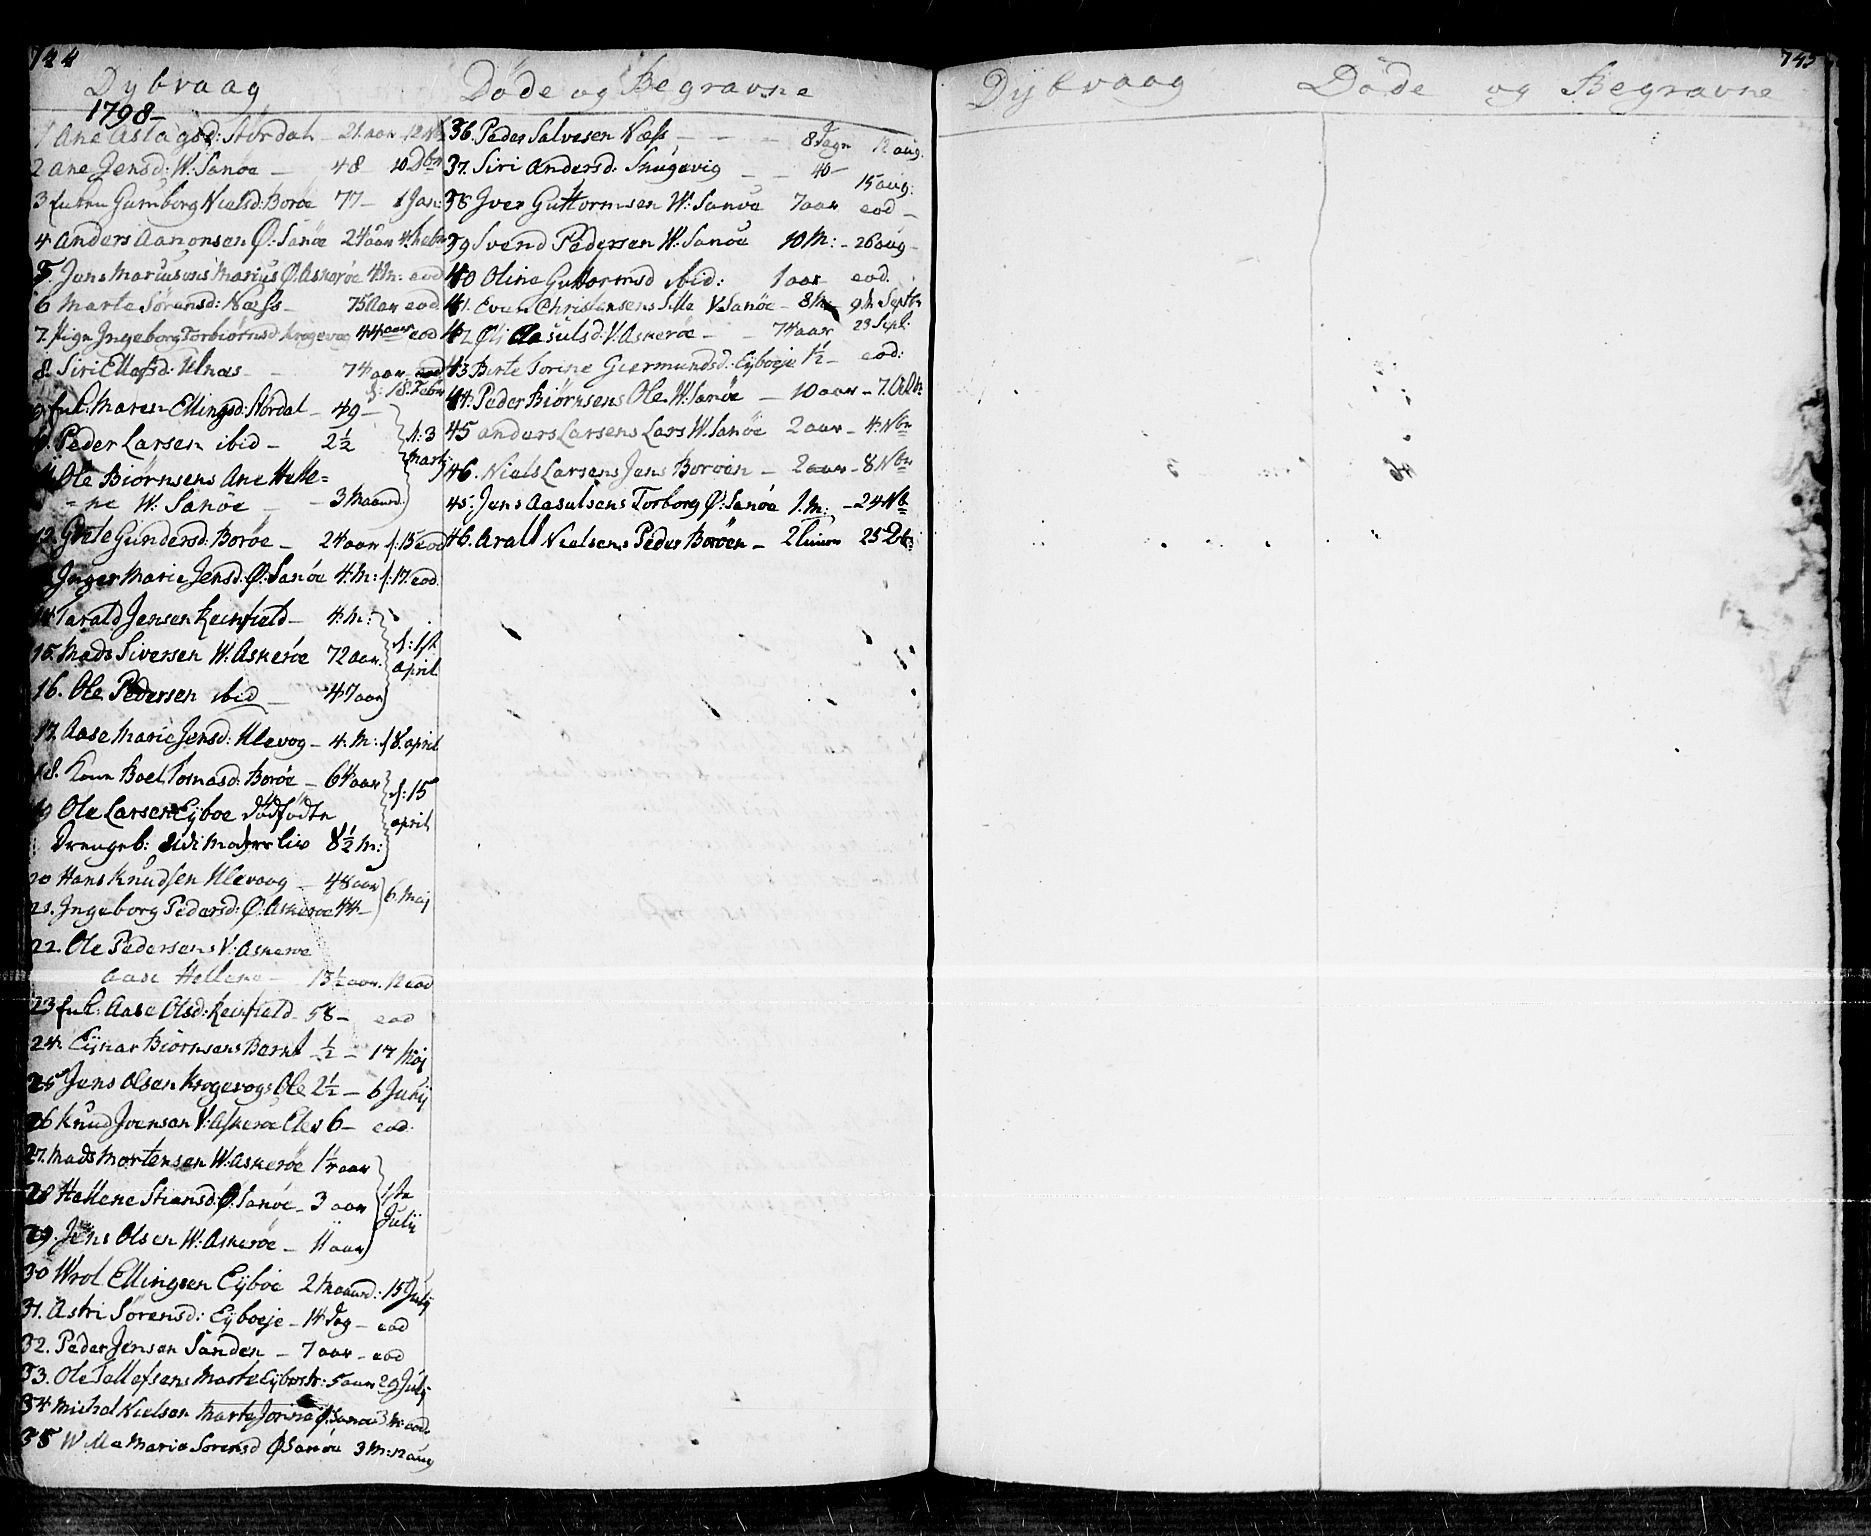 744
Dybvaag Døde og Begravne
1798
1 Ane Aslagsd: Stordal – 21 aar
2 Ane Jensd: W: Sanøe – 48 10 Dbr
3 Gunborg Nielsd: Borøe 77 – 1 Jan:
4 Anders Aanonsen Ø: Sanøe 24 aar 4 Febr
5. Jens Marcusens Marius Ø. Askerøe 4 M: eod
6 Marte Sørensd: Næss – 75 aar eod
7. Pigen Ingeborg Torbiørnsd Krogevog 44 aar eod
8. Siri Ellefsd: Ulnæs – 74 aar
d: 18. Febr
9. Maren Ellingsd: Stordal – 49 –
10. Peder Larsen ibid – 2½
d: 3 Marti
11. Ole Biørnsens Ane Helle=
=ne W: Sanøe – 3 Maaned.
12. Grete Gundersd: Borøe – 24 aar d: 15 eod
Inger Marie Jensd: Ø: Sanøe 4 M: d: 17. eod.
14 Tarald Jensen Reinfield – 4. M:
15. Mads Siversen W: Askerøe 72 aar.
d: 1st april
16. Ole Pedersen ibid – 47 aar
17. Aase Marie Jensd: Ulevog – 4. M: d 8. april
18. Kone Boel Tomasd: Borøe – 64 aar
d: 15 april
19 Ole Larsen Eyboe dødfødte
Drengeb: i Moders liv 8½ M:
20 Hans Knudsen Ulevaag – 48 aar
6 Maj
21. Ingeborg Pedersd: Ø: Askerøe 44 –
22. Ole Pedersens V: Askerøe
Aase Hellene – 13½ aar. 12 eod
23 Aase Olsd: Reinfield – 58 – eod
24. Eynar Biørnsens Bernt ½ – 17 Maj
25 Jens Olsen Krogevogs Ole 2½ – 6 Junij
26 Knud Joensen V: Askerøe 6 – eod:
27. Mads Mortensen W: Askerøe 1½ aar
1ste Julij
28 Hellene Stiansd: Ø: Sanøe – 3 aar
29. Jens Olsen W: Askerøe – 11 aar
30 Wrol Ellingsen Eyboe 2 Maaned: 15 Julij
31. Astri Sørensd: Eyboeje – 14 Dag – eod
32. Peder Jensen Sanden – 7 aar – eod
33. Ole Tallefsens Marte 5 aar 29 Julij
34 Michel Nielsen Marte Jorine Ø. Sanøe 3 M: eod.
35 Maria Sørensd Ø Sanøe 3 M: 12 aug
36. Peder Salvesen Næss – – – 8 Dage 12 aug.
37. Siri Andersd: Snugevig – – 40 – 15 aug:
38 Iver Guttormsen W: Sanøe 7 aar eod –
39 Svend Pedersen W: Sanøe 10 M: – 26 aug –
40 Oline Guttormsd ibid: 1 aar eod.
41. Even Christensens Sille V Sanøe – 8 M. 9de Septbr
42 Øli Aasulsd: V: Askerøe – – 74 aar 23 Sept:
43 Berte Sorine Giermundsd: Eyboeje 1½ – eod:
44. Peder Biørnsens Ole W. Sanøe – 10 aar – 7. Octbr
45 Anders Larsens Lars W. Sanøe 2 aar – 4. Nbr
46. Niels Larsens Jens Borøen – 2 aar – 8 Nbr
45. Jens Aasulsens Torborg Ø: Sanøe 1. M: – 24 Nbr
46. Arall Nielsens Peder Borøen – 2 timer 25 Db:
745
Dybvaag Døde og Begravne